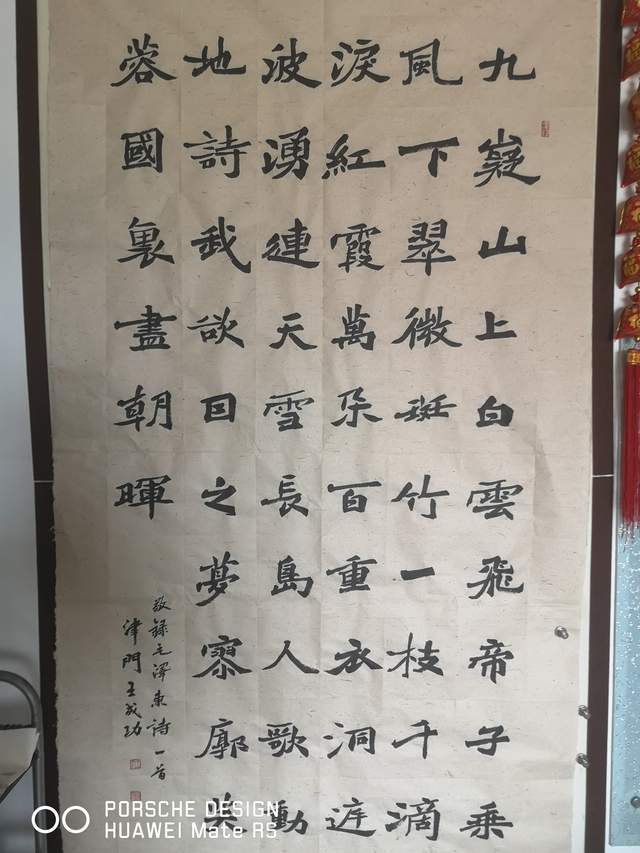 九嶷山上白雲飛帝子乘
風下翠微斑竹一枝千滴
淚紅霞萬朵百重衣洞庭
波湧連天雪長島人歌動
地詩我欲因之夢寥廓芙
蓉國裏盡朝暉
敬録毛澤東詩一首
津門王成功
PORSCHE DESIGN
HUAWEI Mate RS